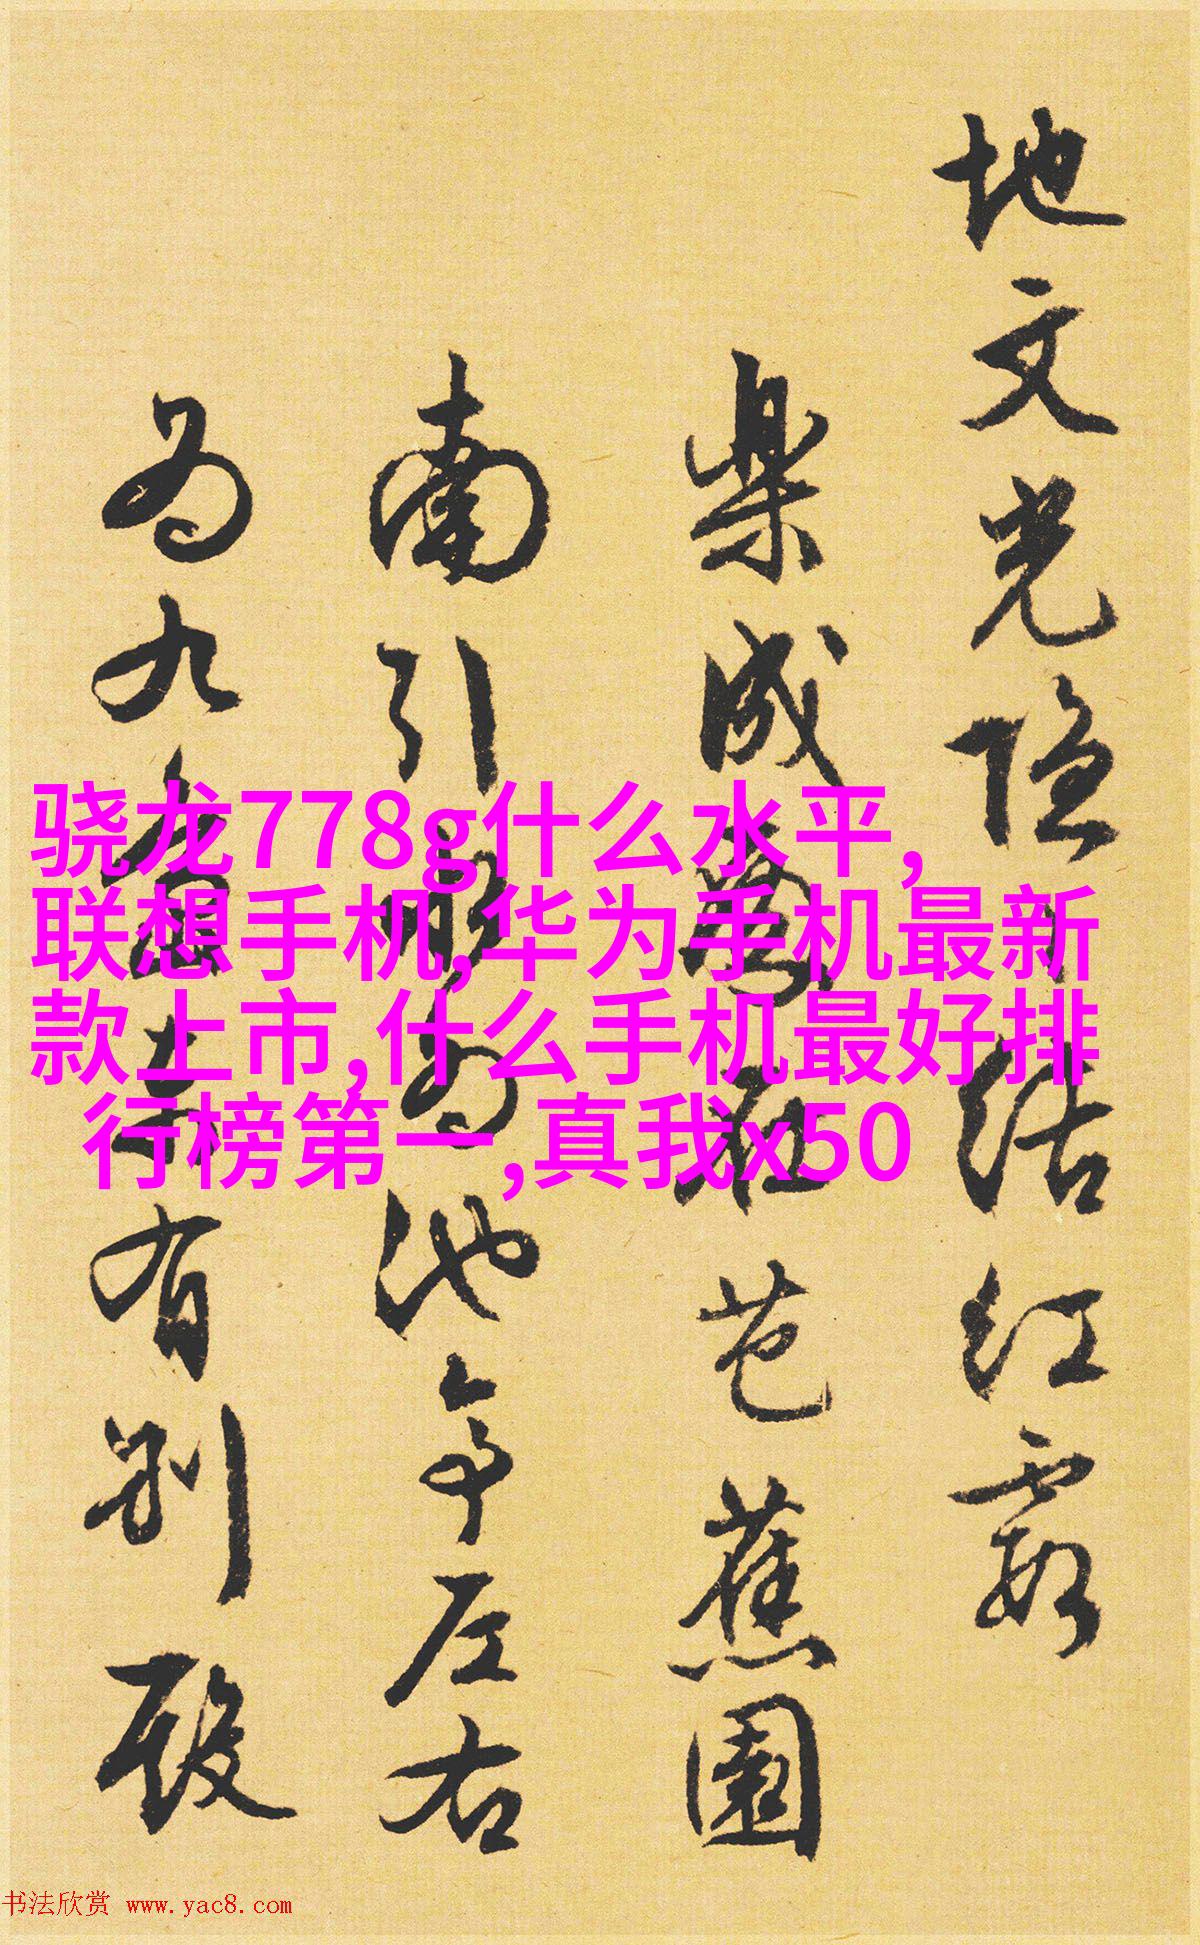 地文光隐
结红霞
樂成
在芭蕉園
南引
为池亭左右
为九
有别殿
骁龙778g什么水平,
联想手机,华为手机最新
款上市,什么手机最好排
行榜第一,真我x50
书法欣赏 www.yac8.com